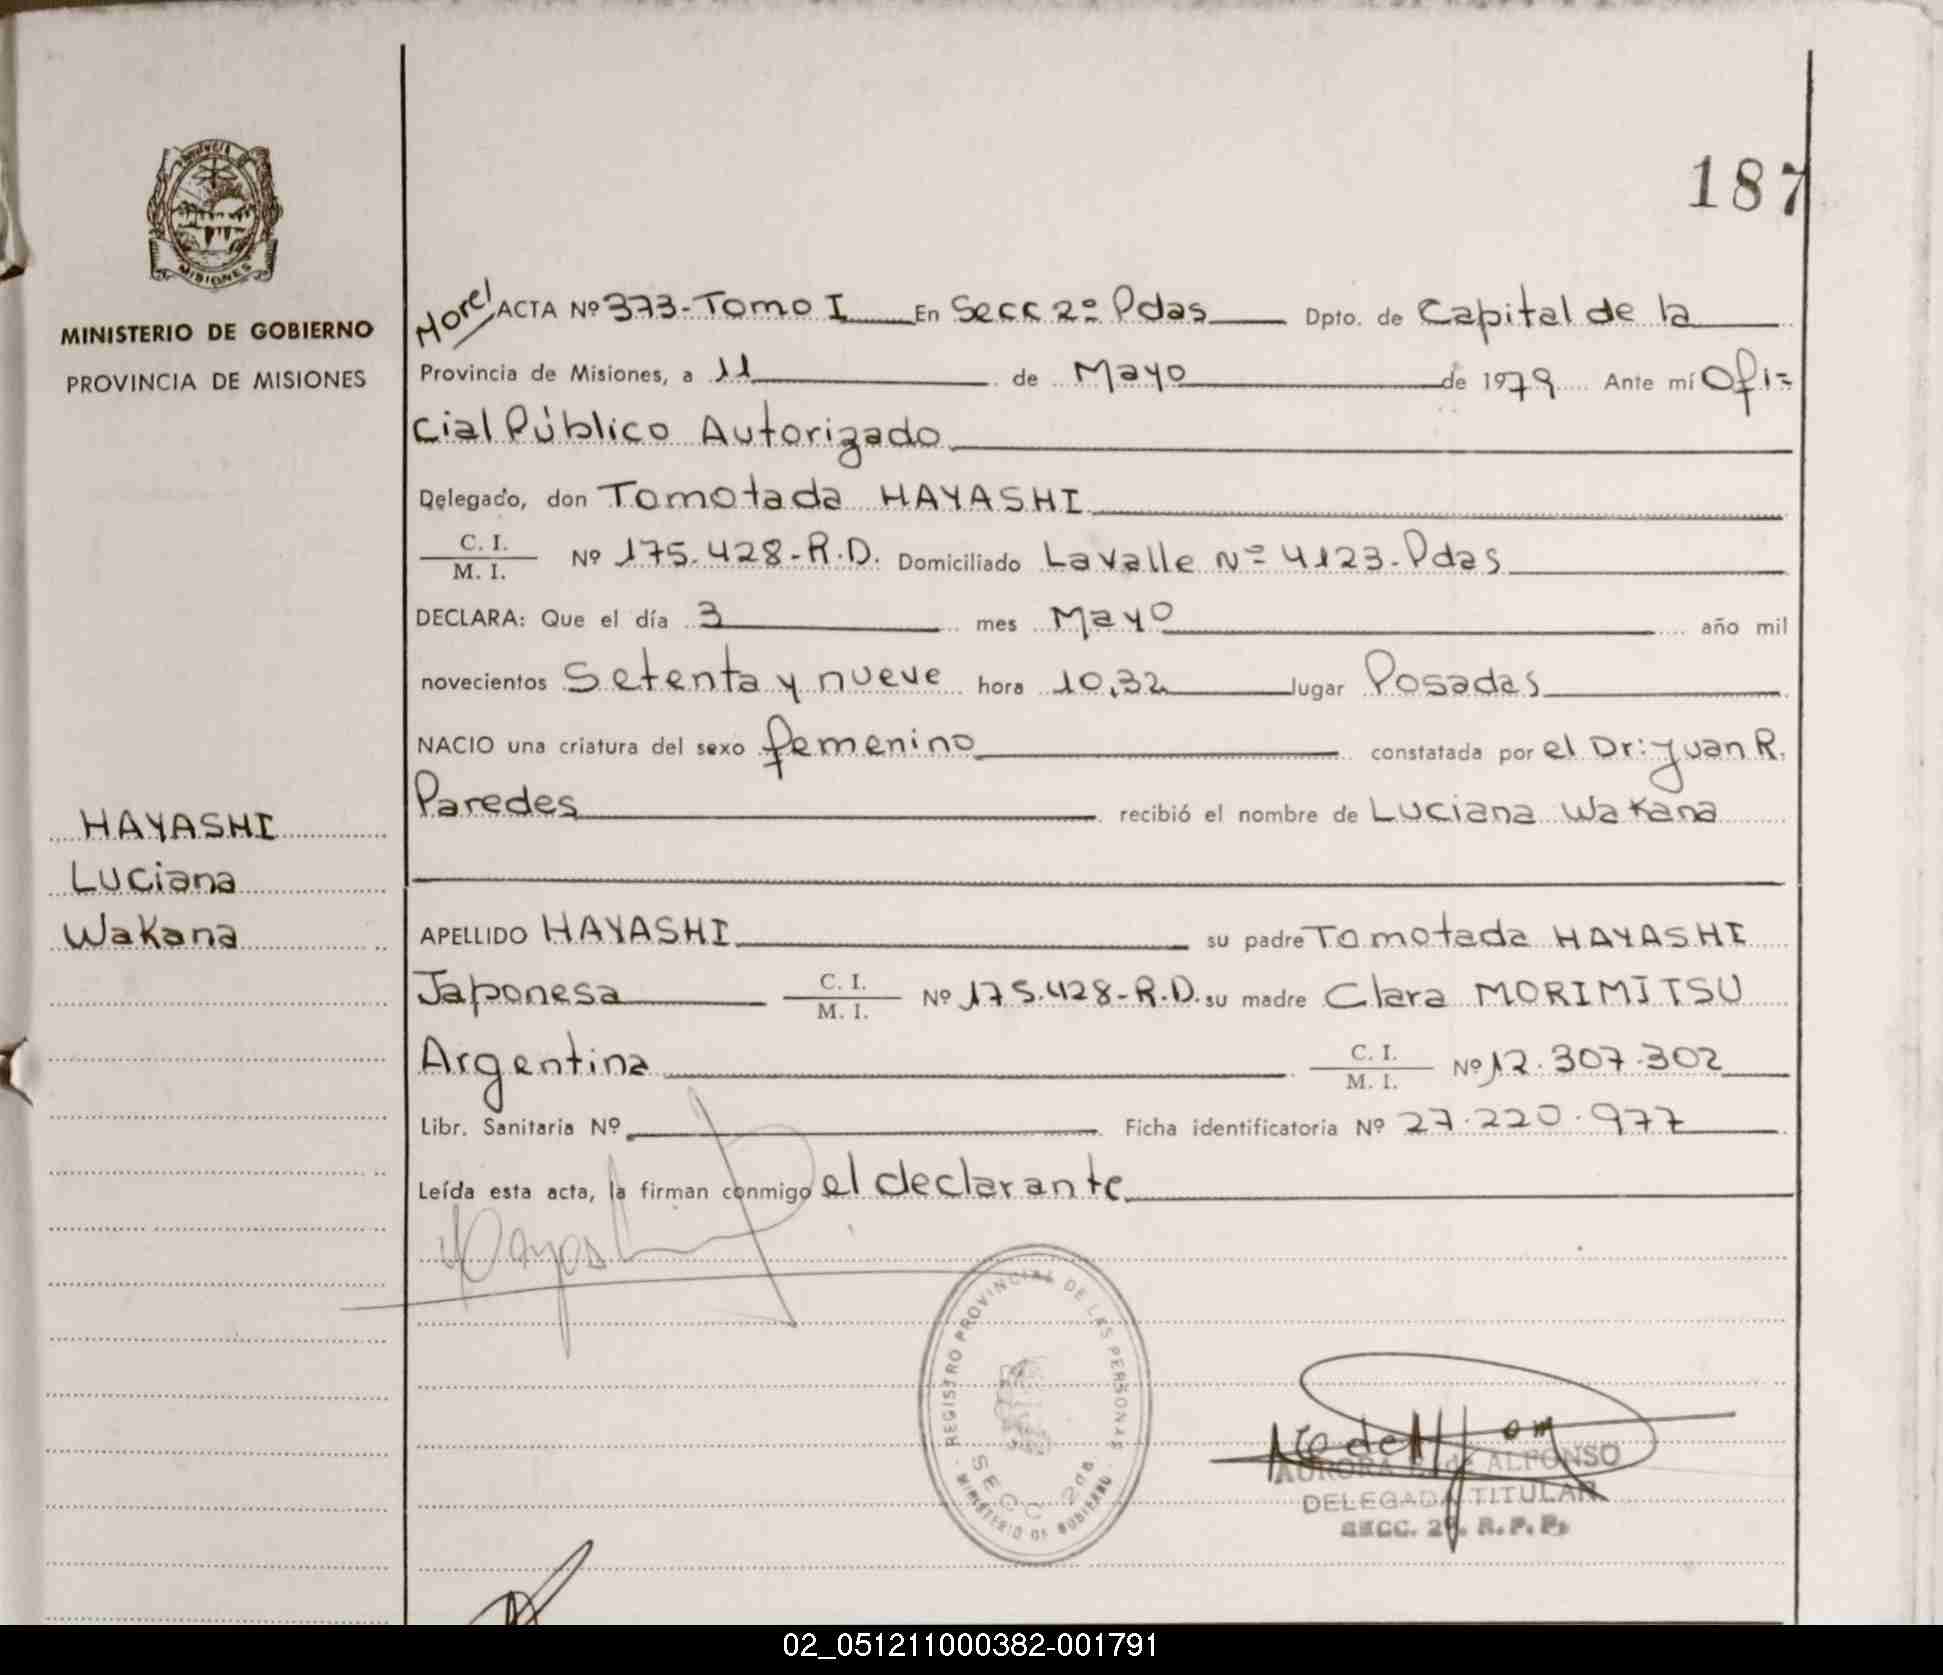 187
PROVINCIA
MISIONES
MINISTERIO DE GOBIERNO
PROVINCIA DE MISIONES
HAYASHI
Luciana
Wakana
Morel ACTA Nº 373-Tomo I En Secc 2º Pdas Dpto. de Capital de la
Provincia de Misiones, a 11 de Mayo de 1979 Ante mí Ofi=
cial Público Autorizado
Delegado, don Tomotada HAYASHI
C. I.
M. I. Nº 175.428-R.D. Domiciliado Lavalle Nº 4123-Pdas
DECLARA: Que el día 3 mes Mayo año mil
novecientos Setenta y nueve hora 10,32 lugar Posadas
NACIO una criatura del sexo femenino constatada por el Dr: Juan R.
Paredes recibió el nombre de Luciana Wakana
APELLIDO HAYASHI su padre Tomotada HAYASHI
Japonesa C. I. M. I. Nº 175.428-R.D. su madre Clara MORIMITSU
Argentina C. I. M. I. Nº 12.307.302
Libr. Sanitaria Nº Ficha identificatoria Nº 27.220.977
Leída esta acta, la firman conmigo el declarante
REGISTRO PROVINCIAL DE LAS PERSONAS
SECC 2da
MINISTERIO DE GOBIERNO
AURORA de ALFONSO
DELEGADA TITULAR
SECC. 2ª. R. P. P.
02_051211000382-001791